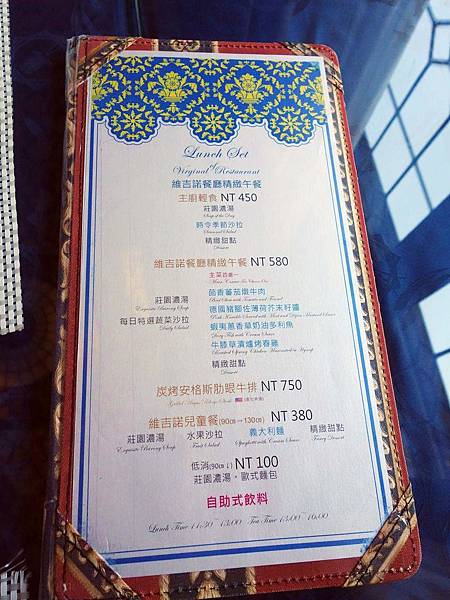 Lunch Set
of
Virginal Restaurant
維吉諾餐廳精緻午餐
主廚輕食 NT 450
莊園濃湯
Soup of the Day
時令季節沙拉
Seasonal Salad
精緻甜點
Dessert
維吉諾餐廳精緻午餐 NT 580
主菜四選一
Main Course To Choose One
莊園濃湯
Exquisite Barony Soup
每日特選蔬菜沙拉
Daily Salad
茴香蕃茄燉牛肉
Beef Stew with Tomato and Fennel
德國豬腳佐薄荷芥末籽醬
Pork Knuckle Served with Mint and Dijon Mustard Sauce
蝦夷蔥香草奶油多利魚
Dory Fish with Cream Sauce
牛膝草漬爐烤春雞
Roasted Spring Chicken Marinated in Hyssop
精緻甜點
Dessert
炭烤安格斯肋眼牛排 NT 750
Grilled Angus Ribeye Steak
維吉諾兒童餐(90㎝~130㎝) NT 380
莊園濃湯 水果沙拉 義大利麵 精緻甜點
Exquisite Barony Soup Fruit Salad Spaghetti with Cream Sauce Fancy Dessert
低消(90㎝↓) NT 100
莊園濃湯、歐式麵包
自助式飲料
Lunch Time 11:30~13:00 Tea Time 13:00~16:00